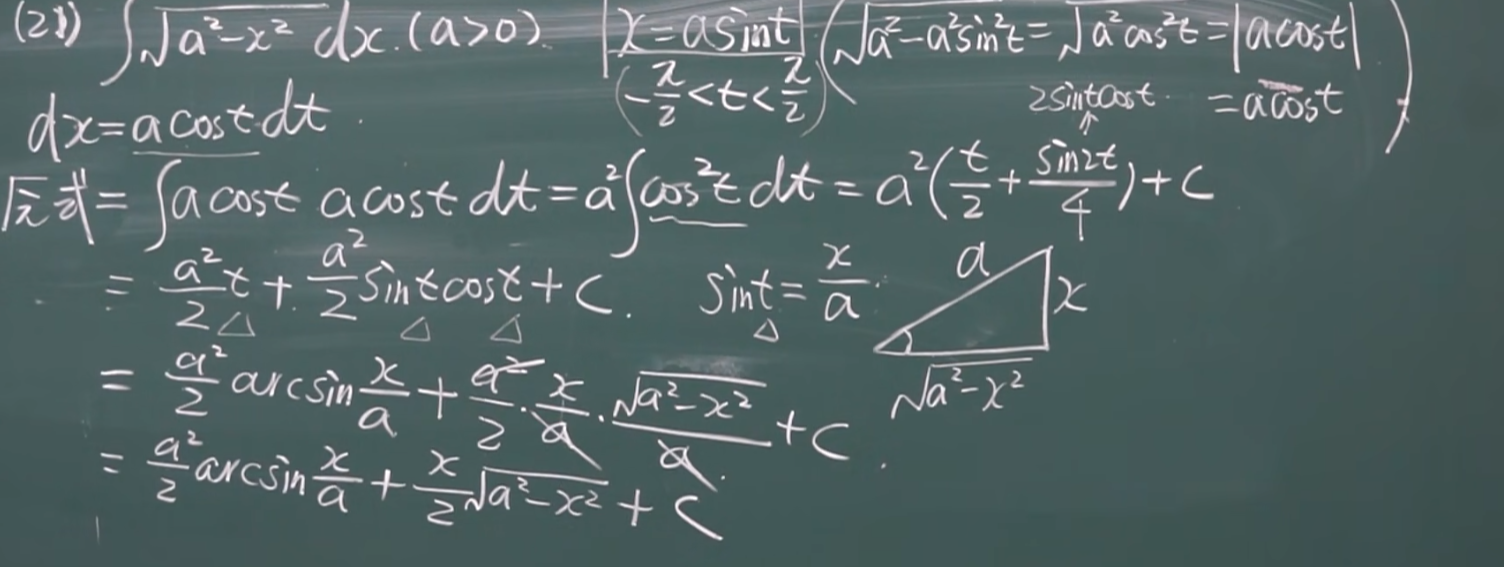 (21) ∫√(a²-x²) dx. (a>0). x=asint (√(a²-a²sin²t)=√(a²cos²t)=|acost|
dx=acostdt. (-π/2<t<π/2) 2sintcost =acost)
原式=∫acost acostdt=a²∫cos²tdt=a²(t/2+sin2t/4)+C
=a²/2 t+a²/2 sintcost+C. sint=x/a. a x
=a²/2 arcsin x/a+a²/2·x/a·√(a²-x²)/a+C. √(a²-x²)
=a²/2 arcsin x/a+x/2 √(a²-x²)+C